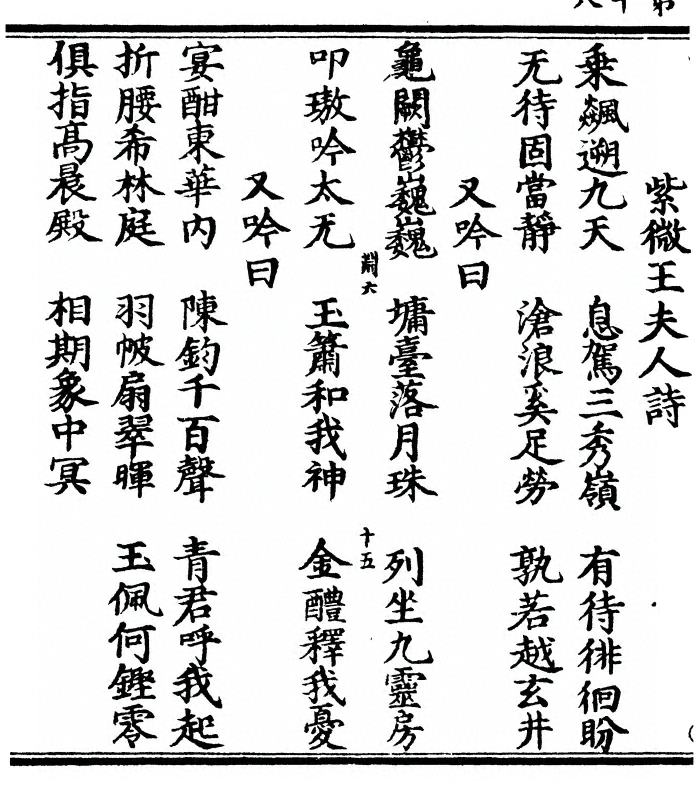 紫微王夫人詩
乘飈遡九天　息駕三秀嶺　有待徘徊盼
无待固當靜　滄浪奚足勞　孰若越玄井
又吟曰
龜闕鬱巍巍　墉臺落月珠　列坐九靈房
淵六　十五
叩璈吟太无　玉簫和我神　金醴釋我憂
又吟曰
宴酣東華内　陳鈞千百聲　青君呼我起
折腰希林庭　羽帔扇翠暉　玉佩何鏗零
俱指髙晨殿　相期象中冥